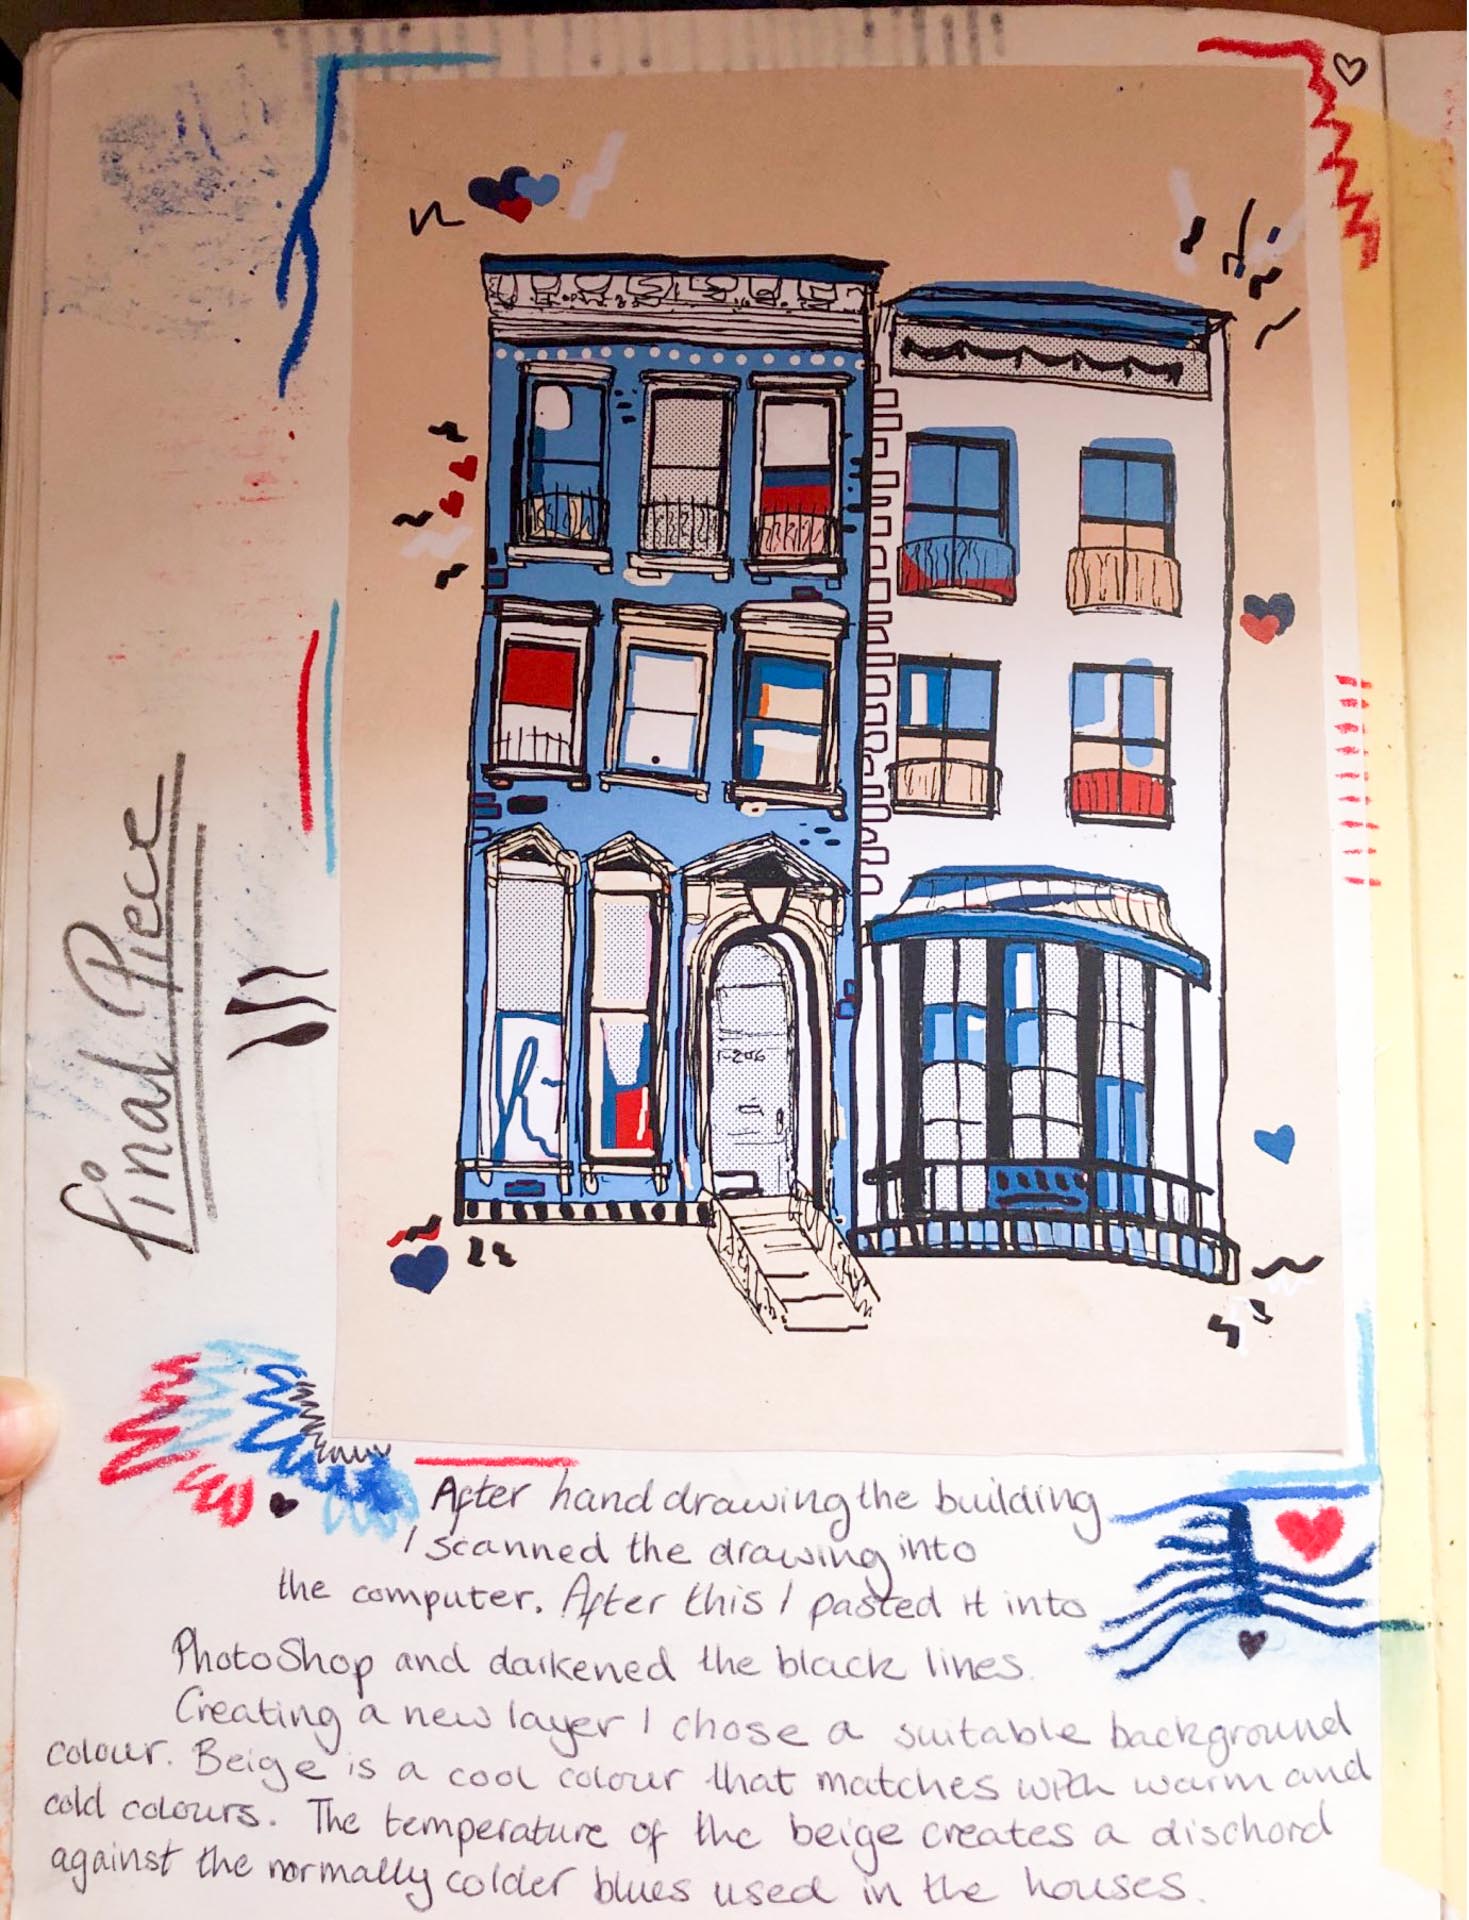 Final Piece
1-206
After hand drawing the building
I scanned the drawing into
the computer. After this I pasted it into
PhotoShop and darkened the black lines.
Creating a new layer I chose a suitable background
colour. Beige is a cool colour that matches with warm and
cold colours. The temperature of the beige creates a dischord
against the normally colder blues used in the houses.